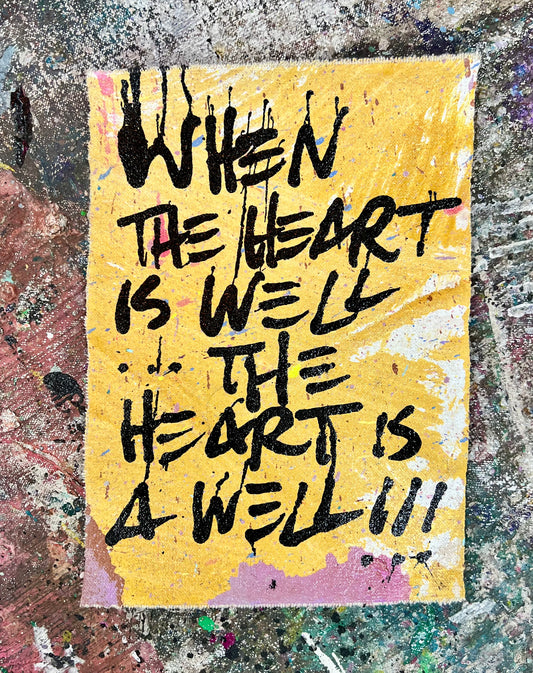 WHEN
THE HEART
IS WELL
... THE
HEART IS
A WELL!!!